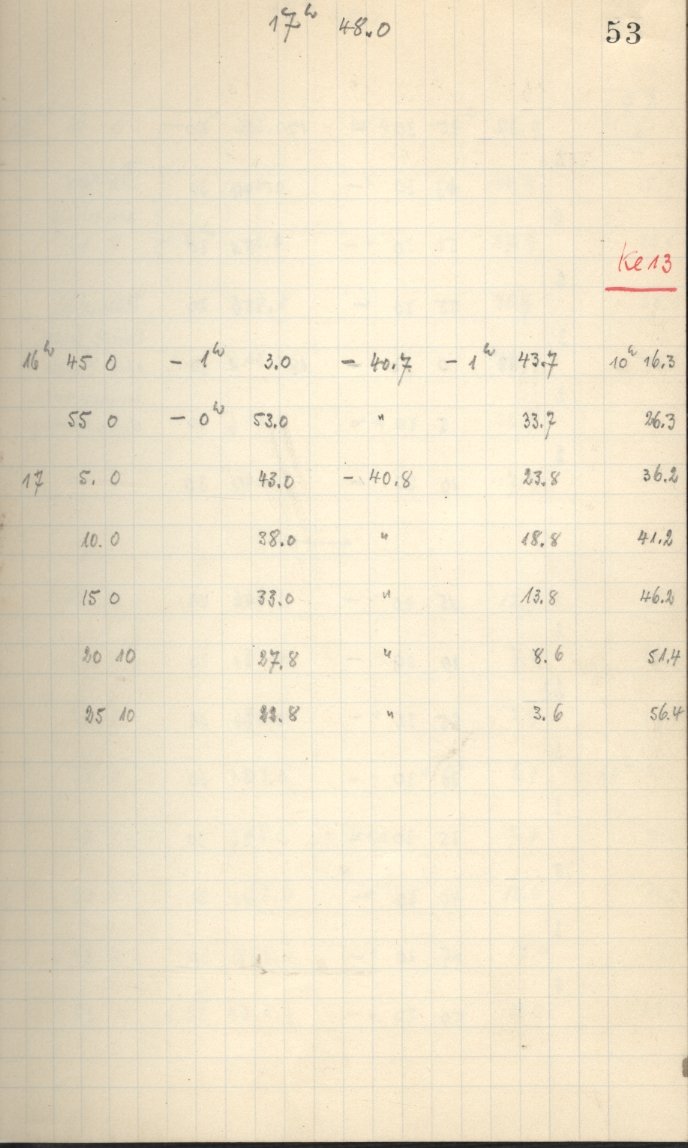 17ʰ 48.0
53
Ke 13
16ʰ 45 0 – 1ʰ 3.0 – 40.7 – 1ʰ 43.7 10ʰ 16.3
55 0 – 0ʰ 53.0 " 33.7 26.3
17 5. 0 43.0 – 40.8 23.8 36.2
10. 0 38.0 " 18.8 41.2
15 0 33.0 " 13.8 46.2
20 10 27.8 " 8.6 51.4
25 10 22.8 " 3.6 56.4